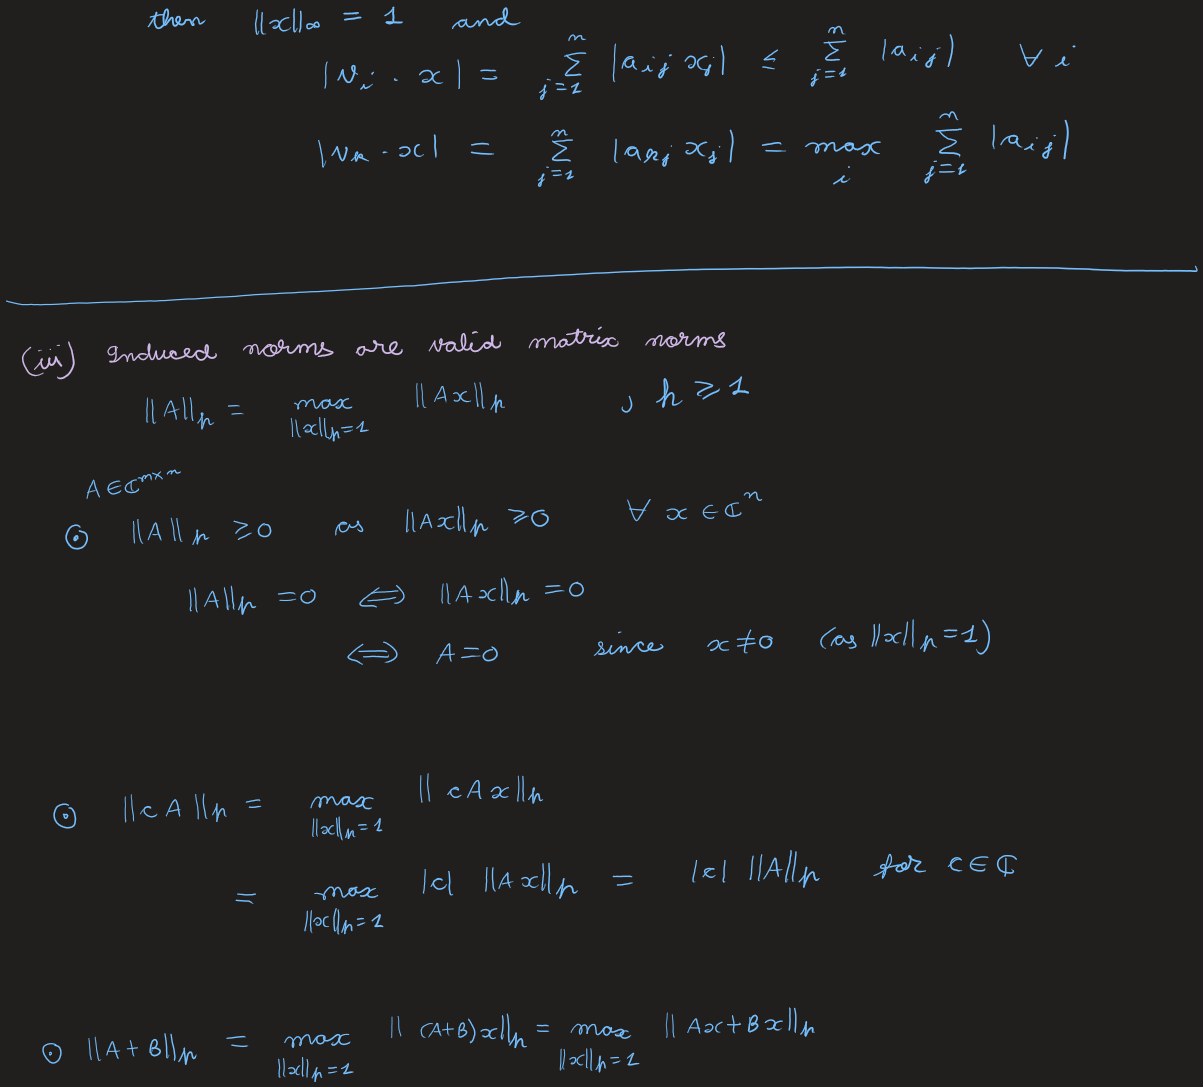 then ||x||∞ = 1 and
|v_i . x| = ∑_{j=1}^{n} |a_{ij} x_j| ≤ ∑_{j=1}^{n} |a_{ij}| ∀ i
|v_k . x| = ∑_{j=1}^{n} |a_{kj} x_j| = max_i ∑_{j=1}^{n} |a_{ij}|
(iii) Induced norms are valid matrix norms
||A||_p = max_{||x||_p=1} ||Ax||_p , p ≥ 1
A ∈ ℂ^{m×n}
⊙ ||A||_p ≥ 0 as ||Ax||_p ≥ 0 ∀ x ∈ ℂ^n
||A||_p = 0 ⟺ ||Ax||_p = 0
⟺ A = 0 since x ≠ 0 (as ||x||_p = 1)
⊙ ||cA||_p = max_{||x||_p=1} ||cAx||_p
= max_{||x||_p=1} |c| ||Ax||_p = |c| ||A||_p for c ∈ ℂ
⊙ ||A+B||_p = max_{||x||_p=1} ||(A+B)x||_p = max_{||x||_p=1} ||Ax+Bx||_p